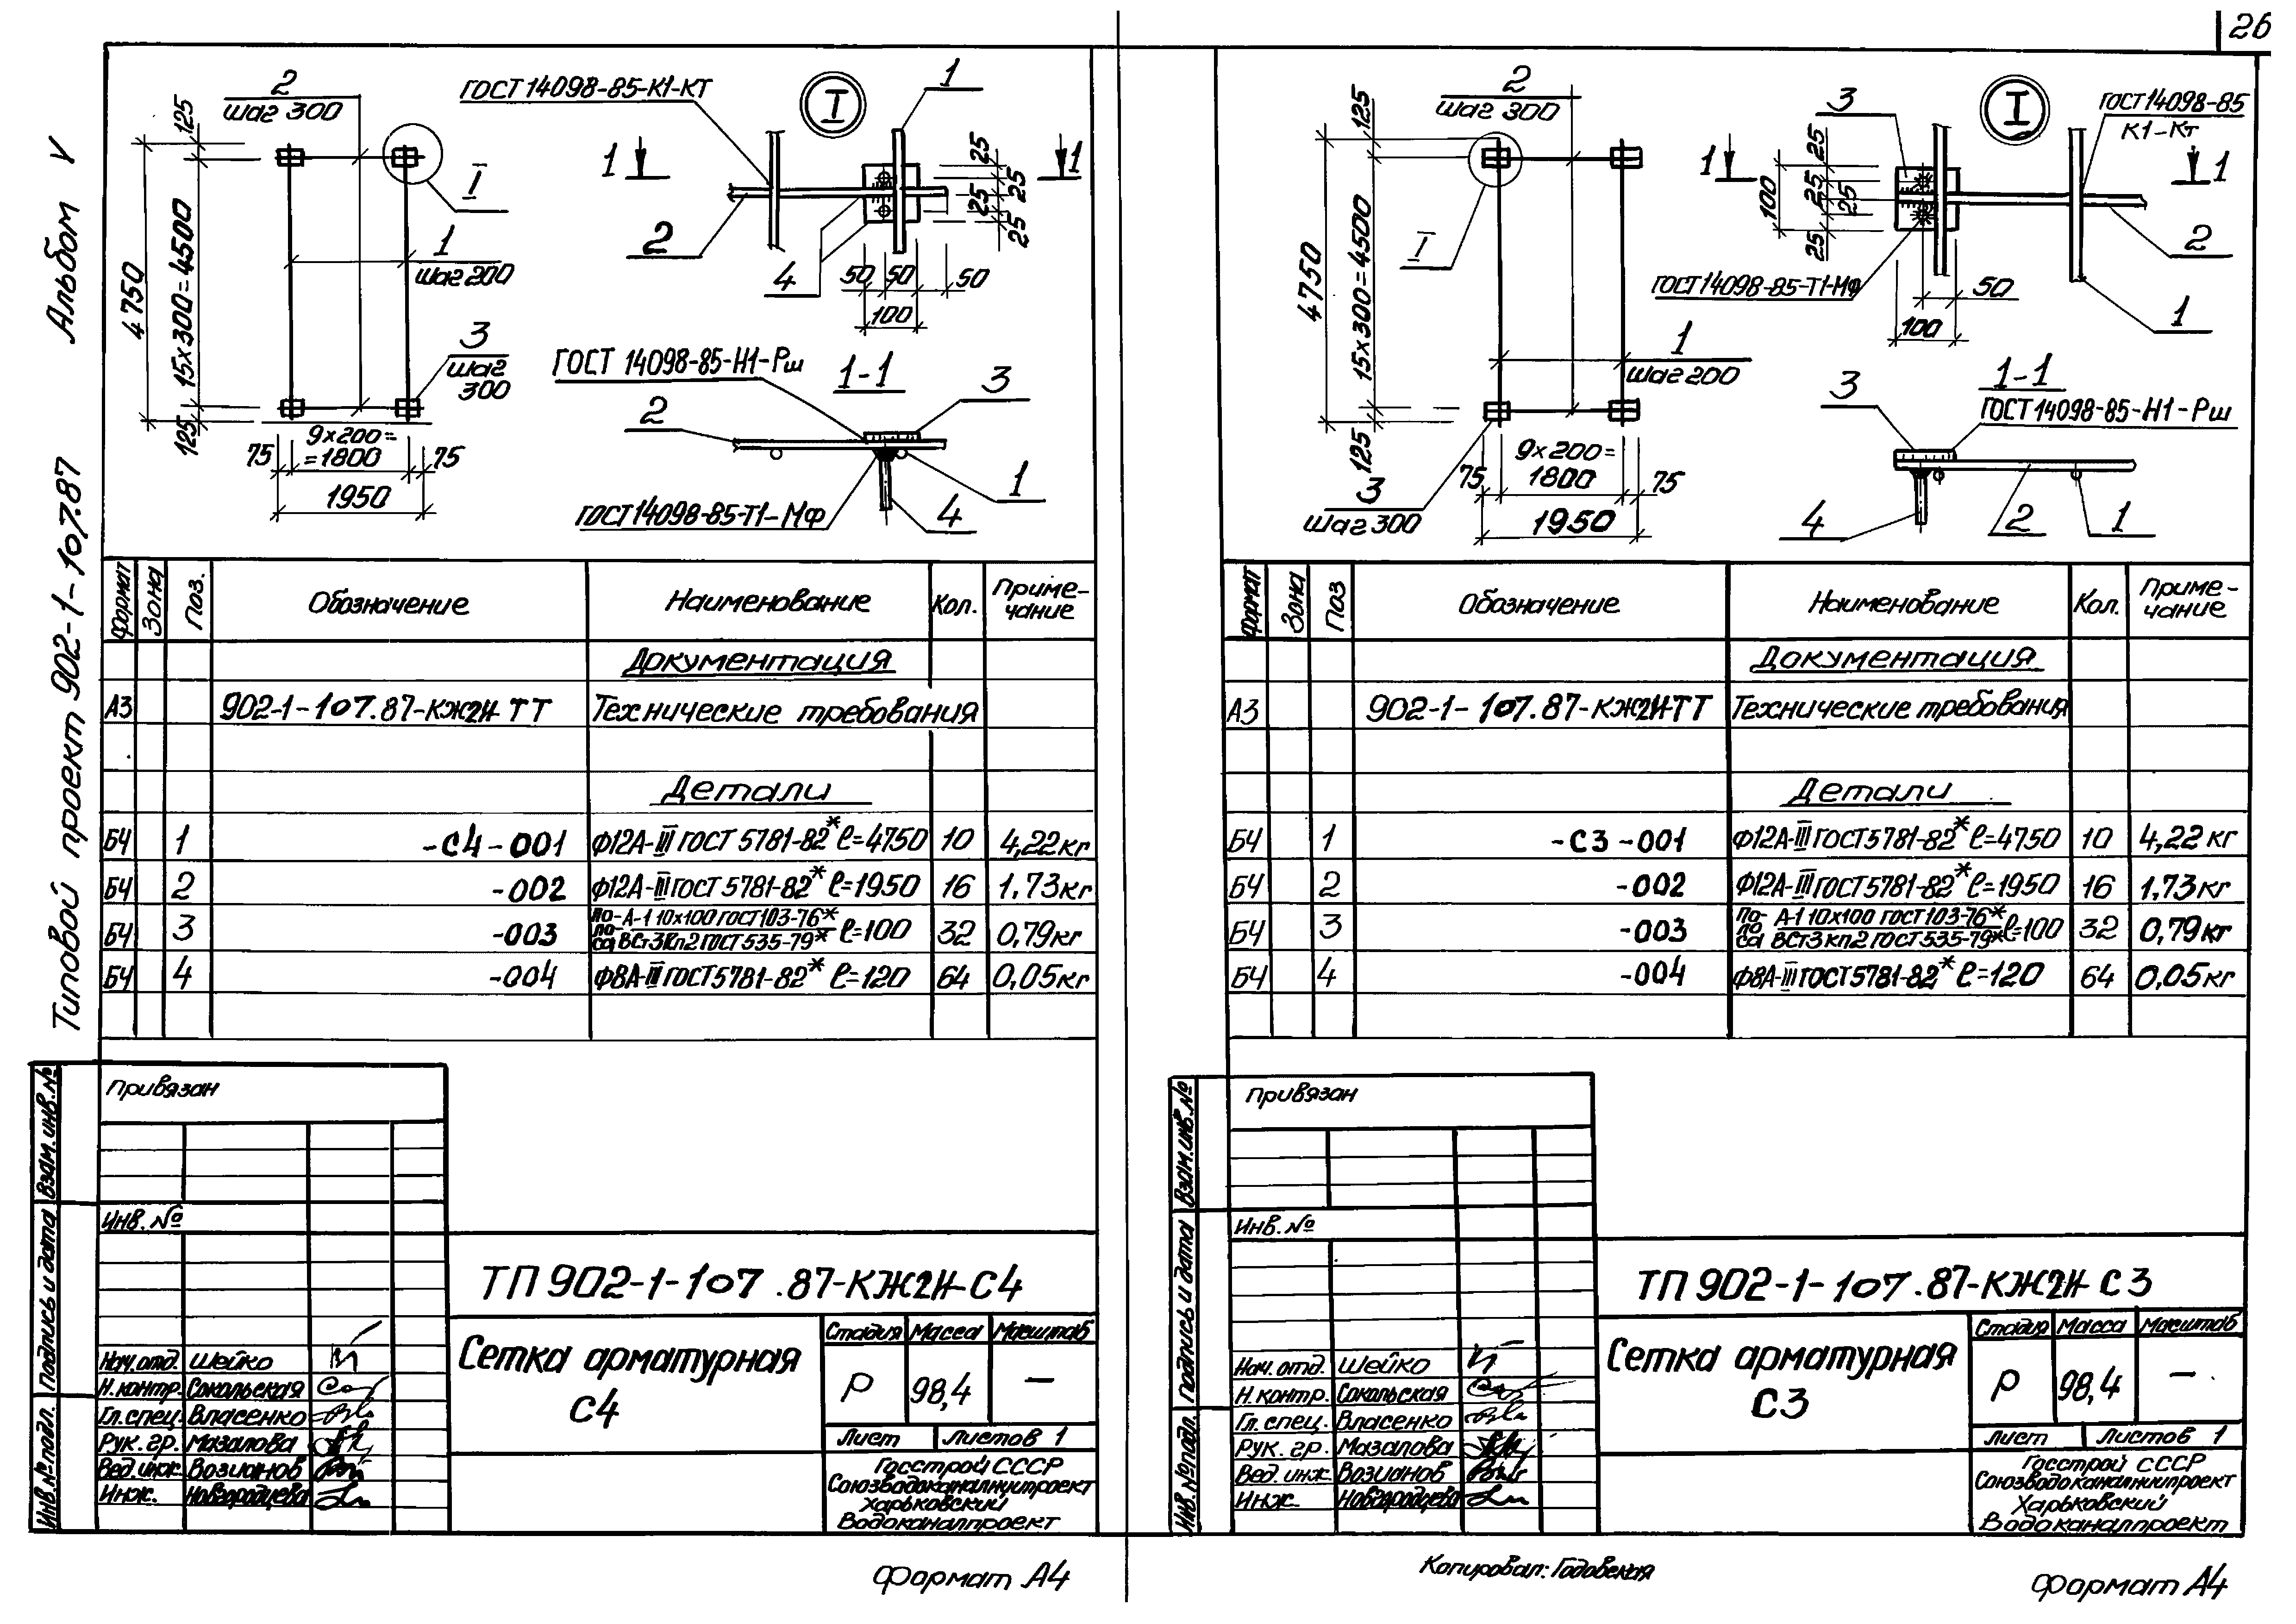 26
Альбом V
Типовой проект 902-1-107.87
2
шаг 300
125
4750
15х300=4500
125
I
1
шаг 200
3
шаг
300
9х200=
=1800
75
75
1950
ГОСТ 14098-85-К1-КТ
I
1
1
1
2
4
25
25
25
25
50
50
50
100
ГОСТ 14098-85-Н1-Рш
1-1
3
2
1
ГОСТ 14098-85-Т1-МФ
4
Формат
Зона
Поз.
Обозначение
Наименование
Кол.
Приме-
чание
Документация
А3 902-1-107.87-КЖ2И ТТ Технические требования
Детали
БЧ 1 -С4-001 Ф12А-III ГОСТ 5781-82* ℓ=4750 10 4,22кг
БЧ 2 -002 Ф12А-III ГОСТ 5781-82* ℓ=1950 16 1,73кг
БЧ 3 -003 по-А-1 10х100 ГОСТ 103-76*
ло
са ВСт3Кп2 ГОСТ 535-79* ℓ=100 32 0,79кг
БЧ 4 -004 Ф8А-III ГОСТ 5781-82* ℓ=120 64 0,05кг
Привязан
Инв. №
Взам. инв. №
Подпись и дата
Инв. № подл.
Нач. отд. Шейко
Н. контр. Сокольская
Гл. спец. Власенко
Рук. гр. Мазалова
Вед. инж. Возианов
Инж. Новгородцева
ТП 902-1-107.87-КЖ2И-С4
Сетка арматурная
С4
Стадия Масса Масштаб
Р 98,4 —
Лист Листов 1
Госстрой СССР
Союзводоканалниипроект
Харьковский
Водоканалпроект
Формат А4
2
шаг 300
125
4750
15х300=4500
125
I
1
шаг 200
3
шаг 300
9х200=
1800
75
75
1950
3
I
ГОСТ 14098-85
К1-Кт
1
1
25
25
25
25
100
2
ГОСТ 14098-85-Т1-МФ
50
100
1
1-1
3
ГОСТ 14098-85-Н1-Рш
4
2
1
Формат
Зона
Поз
Обозначение
Наименование
Кол.
Приме-
чание
Документация
А3 902-1-107.87-КЖ2И-ТТ Технические требования
Детали
БЧ 1 -С3-001 Ф12А-III ГОСТ 5781-82* ℓ=4750 10 4,22 кг
БЧ 2 -002 Ф12А-III ГОСТ 5781-82* ℓ=1950 16 1,73кг
БЧ 3 -003 по- А-1 10х100 ГОСТ 103-76*
ло
са ВСт3кп2 ГОСТ 535-79* ℓ=100 32 0,79кг
БЧ 4 -004 Ф8А-III ГОСТ 5781-82* ℓ=120 64 0,05кг
Привязан
Инв. №
Взам. инв. №
Подпись и дата
Инв. № подл.
Нач. отд. Шейко
Н. контр. Сокольская
Гл. спец. Власенко
Рук. гр. Мазалова
Вед. инж. Возианов
Инж. Новгородцева
ТП 902-1-107.87-КЖ2И-С3
Сетка арматурная
С3
Стадия Масса Масштаб
Р 98,4 —
Лист Листов 1
Госстрой СССР
Союзводоканалниипроект
Харьковский
Водоканалпроект
Копировал: Годовская
Формат А4